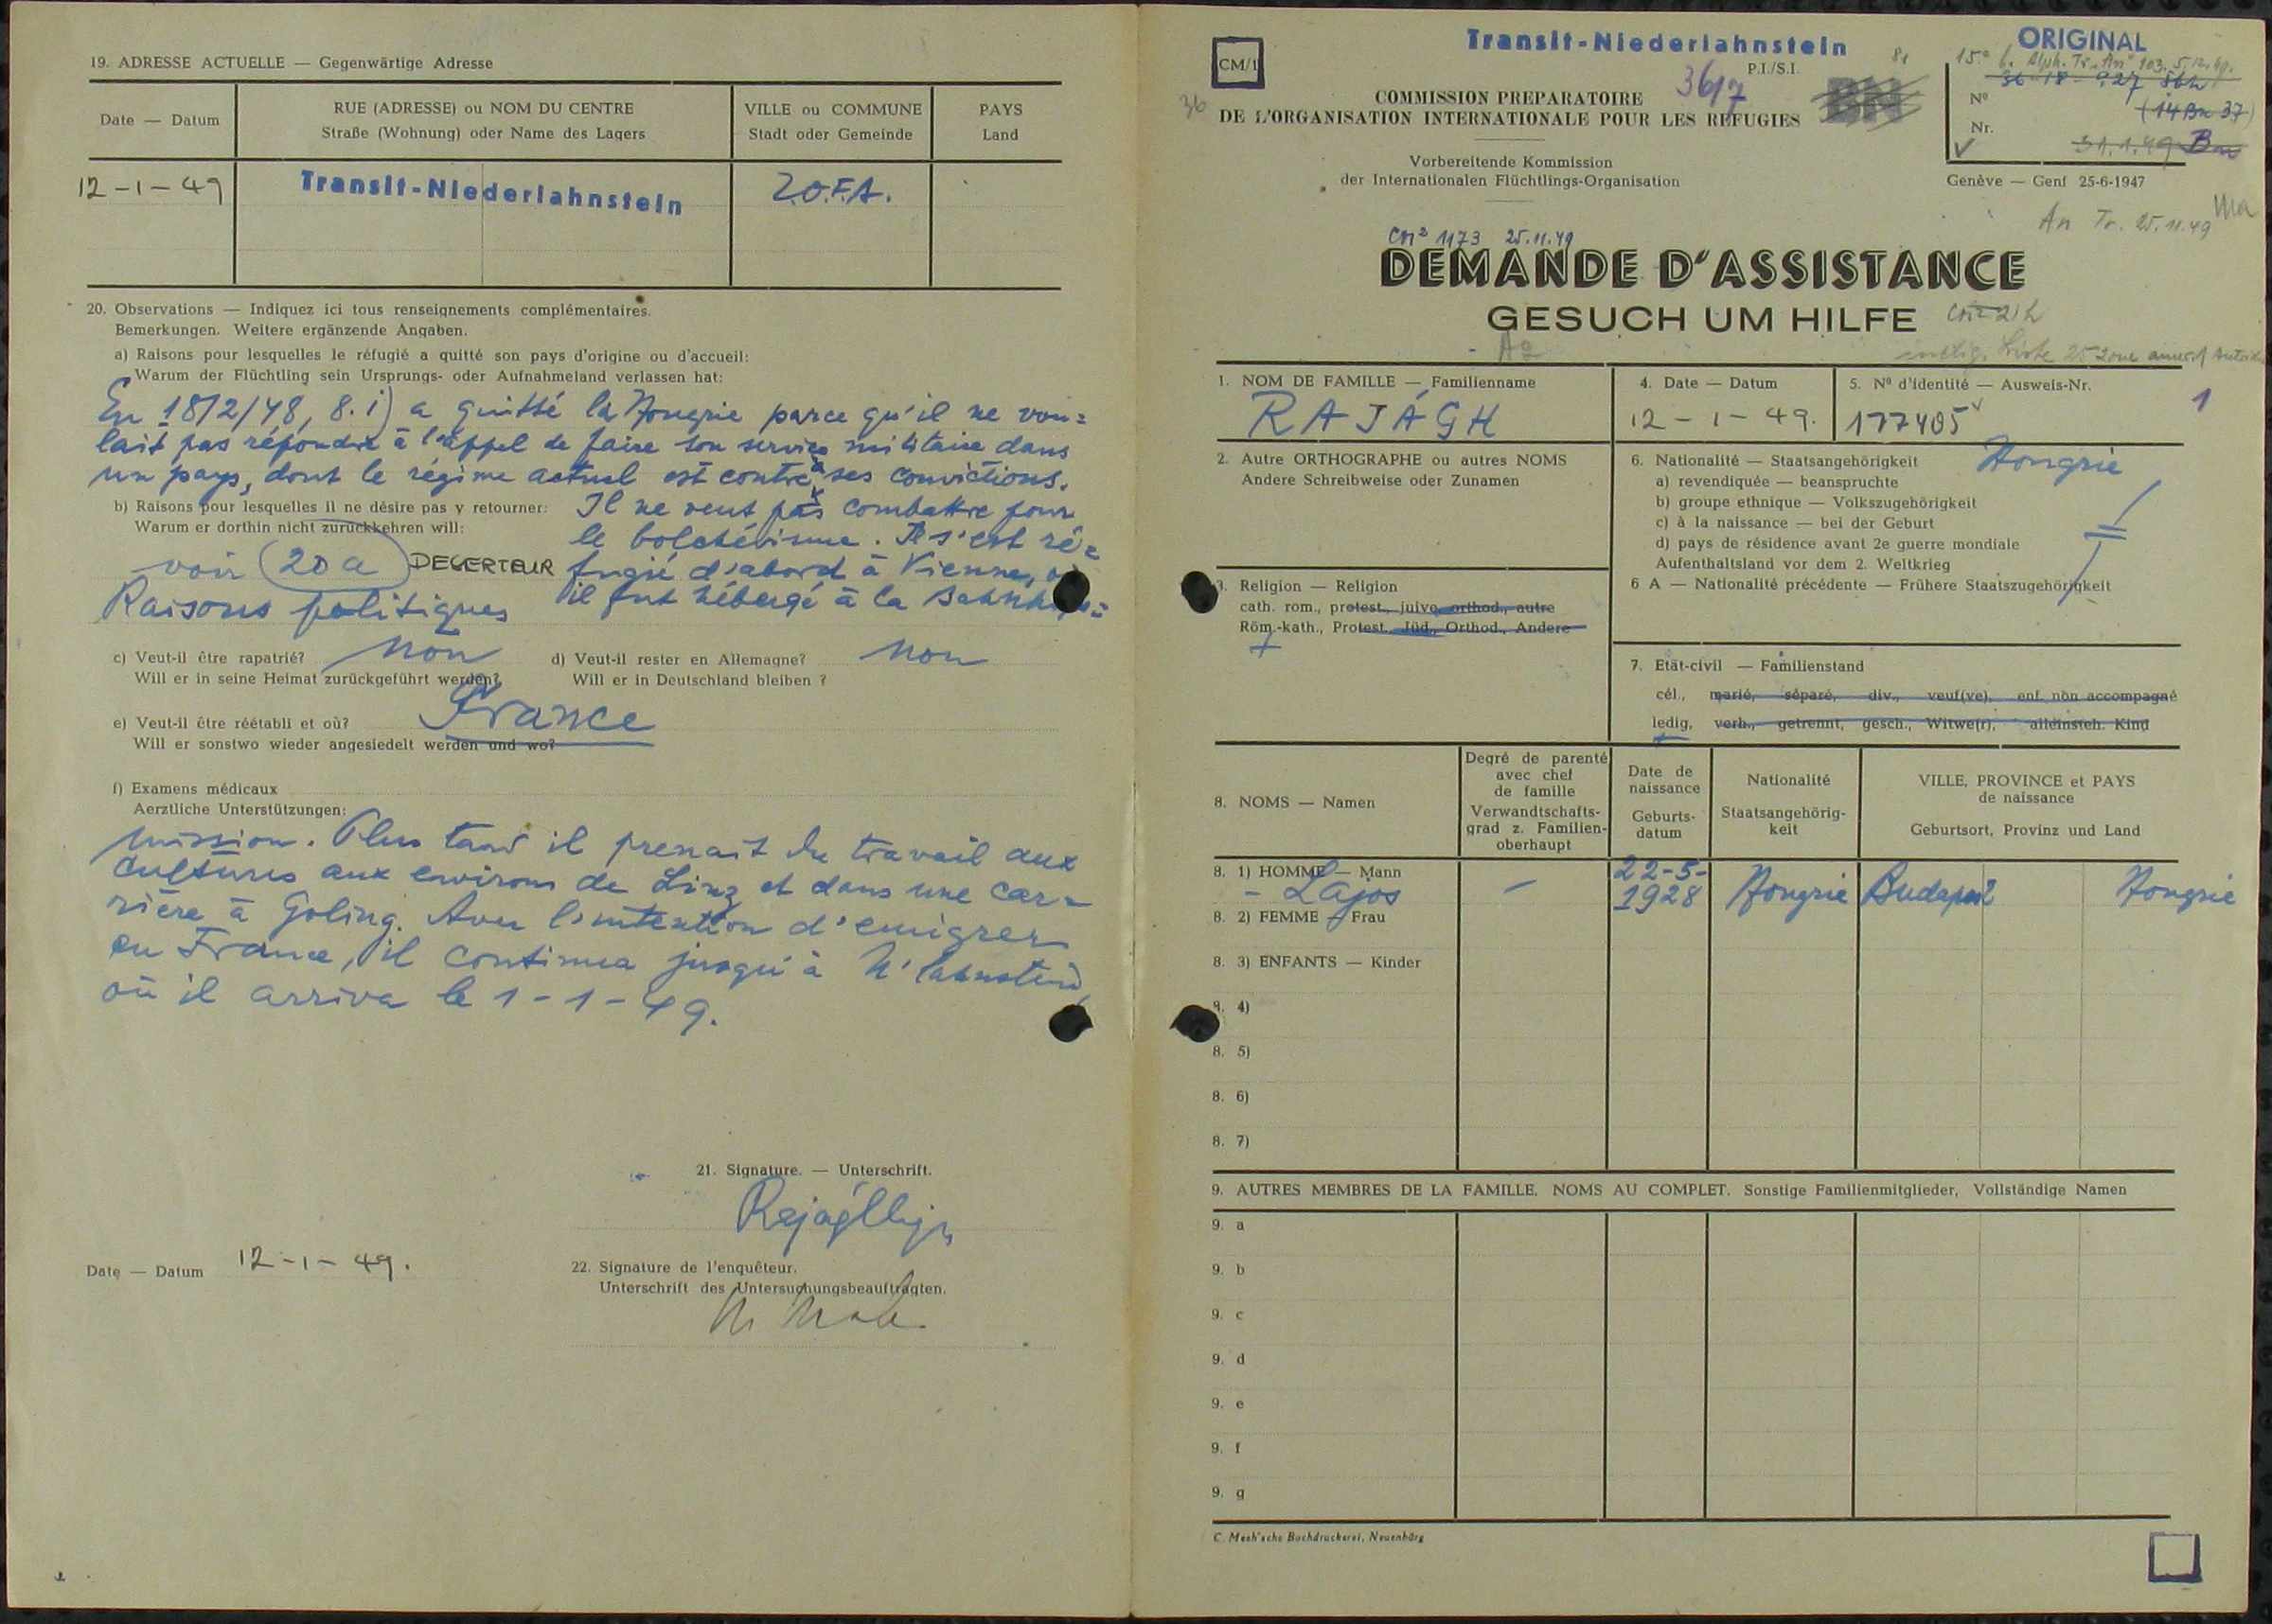 19. ADRESSE ACTUELLE — Gegenwärtige Adresse
Date — Datum
RUE (ADRESSE) ou NOM DU CENTRE
Straße (Wohnung) oder Name des Lagers
VILLE ou COMMUNE
Stadt oder Gemeinde
PAYS
Land
12-1-49
Transit-Niederlahnstein
Z.O.F.A.
20. Observations — Indiquez ici tous renseignements complémentaires.
Bemerkungen. Weitere ergänzende Angaben.
a) Raisons pour lesquelles le réfugié a quitté son pays d'origine ou d'accueil:
Warum der Flüchtling sein Ursprungs- oder Aufnahmeland verlassen hat:
En 18/2/48, 8.1) a quitté la Hongrie parce qu'il ne vou=
lait pas répondre à l'appel de faire son service militaire dans
un pays, dont le régime actuel est contre à ses convictions.
b) Raisons pour lesquelles il ne désire pas y retourner:
Warum er dorthin nicht zurückkehren will:
Il ne veut pas combattre pour
le bolchévisme. Il s'est ré=
voir 20 a DESERTEUR
fugié d'abord à Vienne, où
Raisons politiques
il fut hébergé à la Bahnhofs=
c) Veut-il être rapatrié? non
Will er in seine Heimat zurückgeführt werden?
d) Veut-il rester en Allemagne? non
Will er in Deutschland bleiben ?
e) Veut-il être réétabli et où? France
Will er sonstwo wieder angesiedelt werden und wo?
f) Examens médicaux
Aerztliche Unterstützungen:
mission. Plus tard il prenait du travail aux
cultures aux environs de Linz et dans une car=
rière à Goling. Avec l'intention d'emigrer
en France, il continua jusqu'à N'lahnstein,
où il arriva le 1-1-49.
21. Signature. — Unterschrift.
Date — Datum 12-1-49.
22. Signature de l'enquêteur.
Unterschrift des Untersuchungsbeauftragten.
CM/1
Transit-Niederlahnstein
ORIGINAL
P.I./S.I.
3617
36
81
15.° b. Alph. Tr. An° 103. 5.12.49.
COMMISSION PREPARATOIRE
DE L'ORGANISATION INTERNATIONALE POUR LES REFUGIES
BN
N°
Nr.
(14 Bn 37)
31.1.49 Bn
Vorbereitende Kommission
der Internationalen Flüchtlings-Organisation
Genève — Genf 25-6-1947
An Tr. 25.11.49
CM2 1173 25.11.49
DEMANDE D'ASSISTANCE
GESUCH UM HILFE
1. NOM DE FAMILLE — Familienname
RAJÁGH
4. Date — Datum
12-1-49.
5. N° d'identité — Ausweis-Nr.
177405
1
2. Autre ORTHOGRAPHE ou autres NOMS
Andere Schreibweise oder Zunamen
6. Nationalité — Staatsangehörigkeit Hongrie
a) revendiquée — beanspruchte
b) groupe ethnique — Volkszugehörigkeit
c) à la naissance — bei der Geburt
d) pays de résidence avant 2e guerre mondiale
Aufenthaltsland vor dem 2. Weltkrieg
6 A — Nationalité précédente — Frühere Staatszugehörigkeit
3. Religion — Religion
cath. rom., protest., juive, orthod., autre
Röm.-kath., Protest., Jüd., Orthod., Andere
7. Etât-civil — Familienstand
cél., marié, séparé, div., veuf(ve), enf. non accompagné
ledig, verh., getrennt, gesch., Witwe(r), alleinsteh. Kind
8. NOMS — Namen
Degré de parenté
avec chef
de famille
Verwandtschafts-
grad z. Familien-
oberhaupt
Date de
naissance
Geburts-
datum
Nationalité
Staatsangehörig-
keit
VILLE, PROVINCE et PAYS
de naissance
Geburtsort, Provinz und Land
8. 1) HOMME — Mann
- Lajos
-
22-5-
1928
Hongrie
Budapest
Hongrie
8. 2) FEMME — Frau
8. 3) ENFANTS — Kinder
8. 4)
8. 5)
8. 6)
8. 7)
9. AUTRES MEMBRES DE LA FAMILLE, NOMS AU COMPLET. Sonstige Familienmitglieder, Vollständige Namen
9. a
9. b
9. c
9. d
9. e
9. f
9. g
C. Meeh'sche Buchdruckerei, Neuenbürg